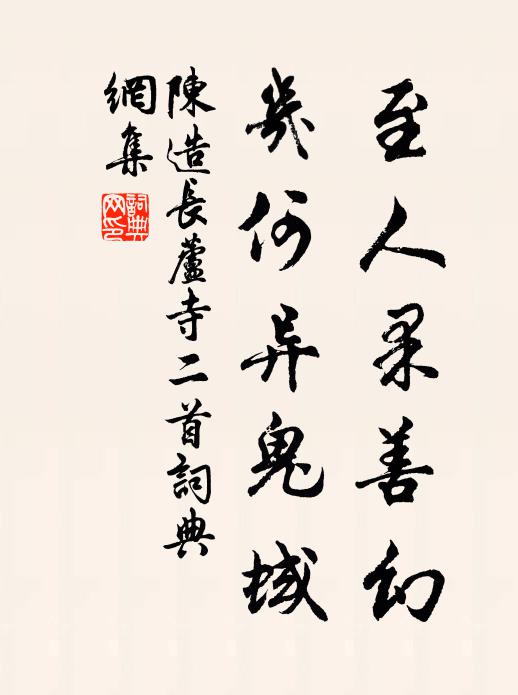 至人果善幻
幾何异鬼蜮
陳造長蘆寺二首詞典
網集
詞典
网印